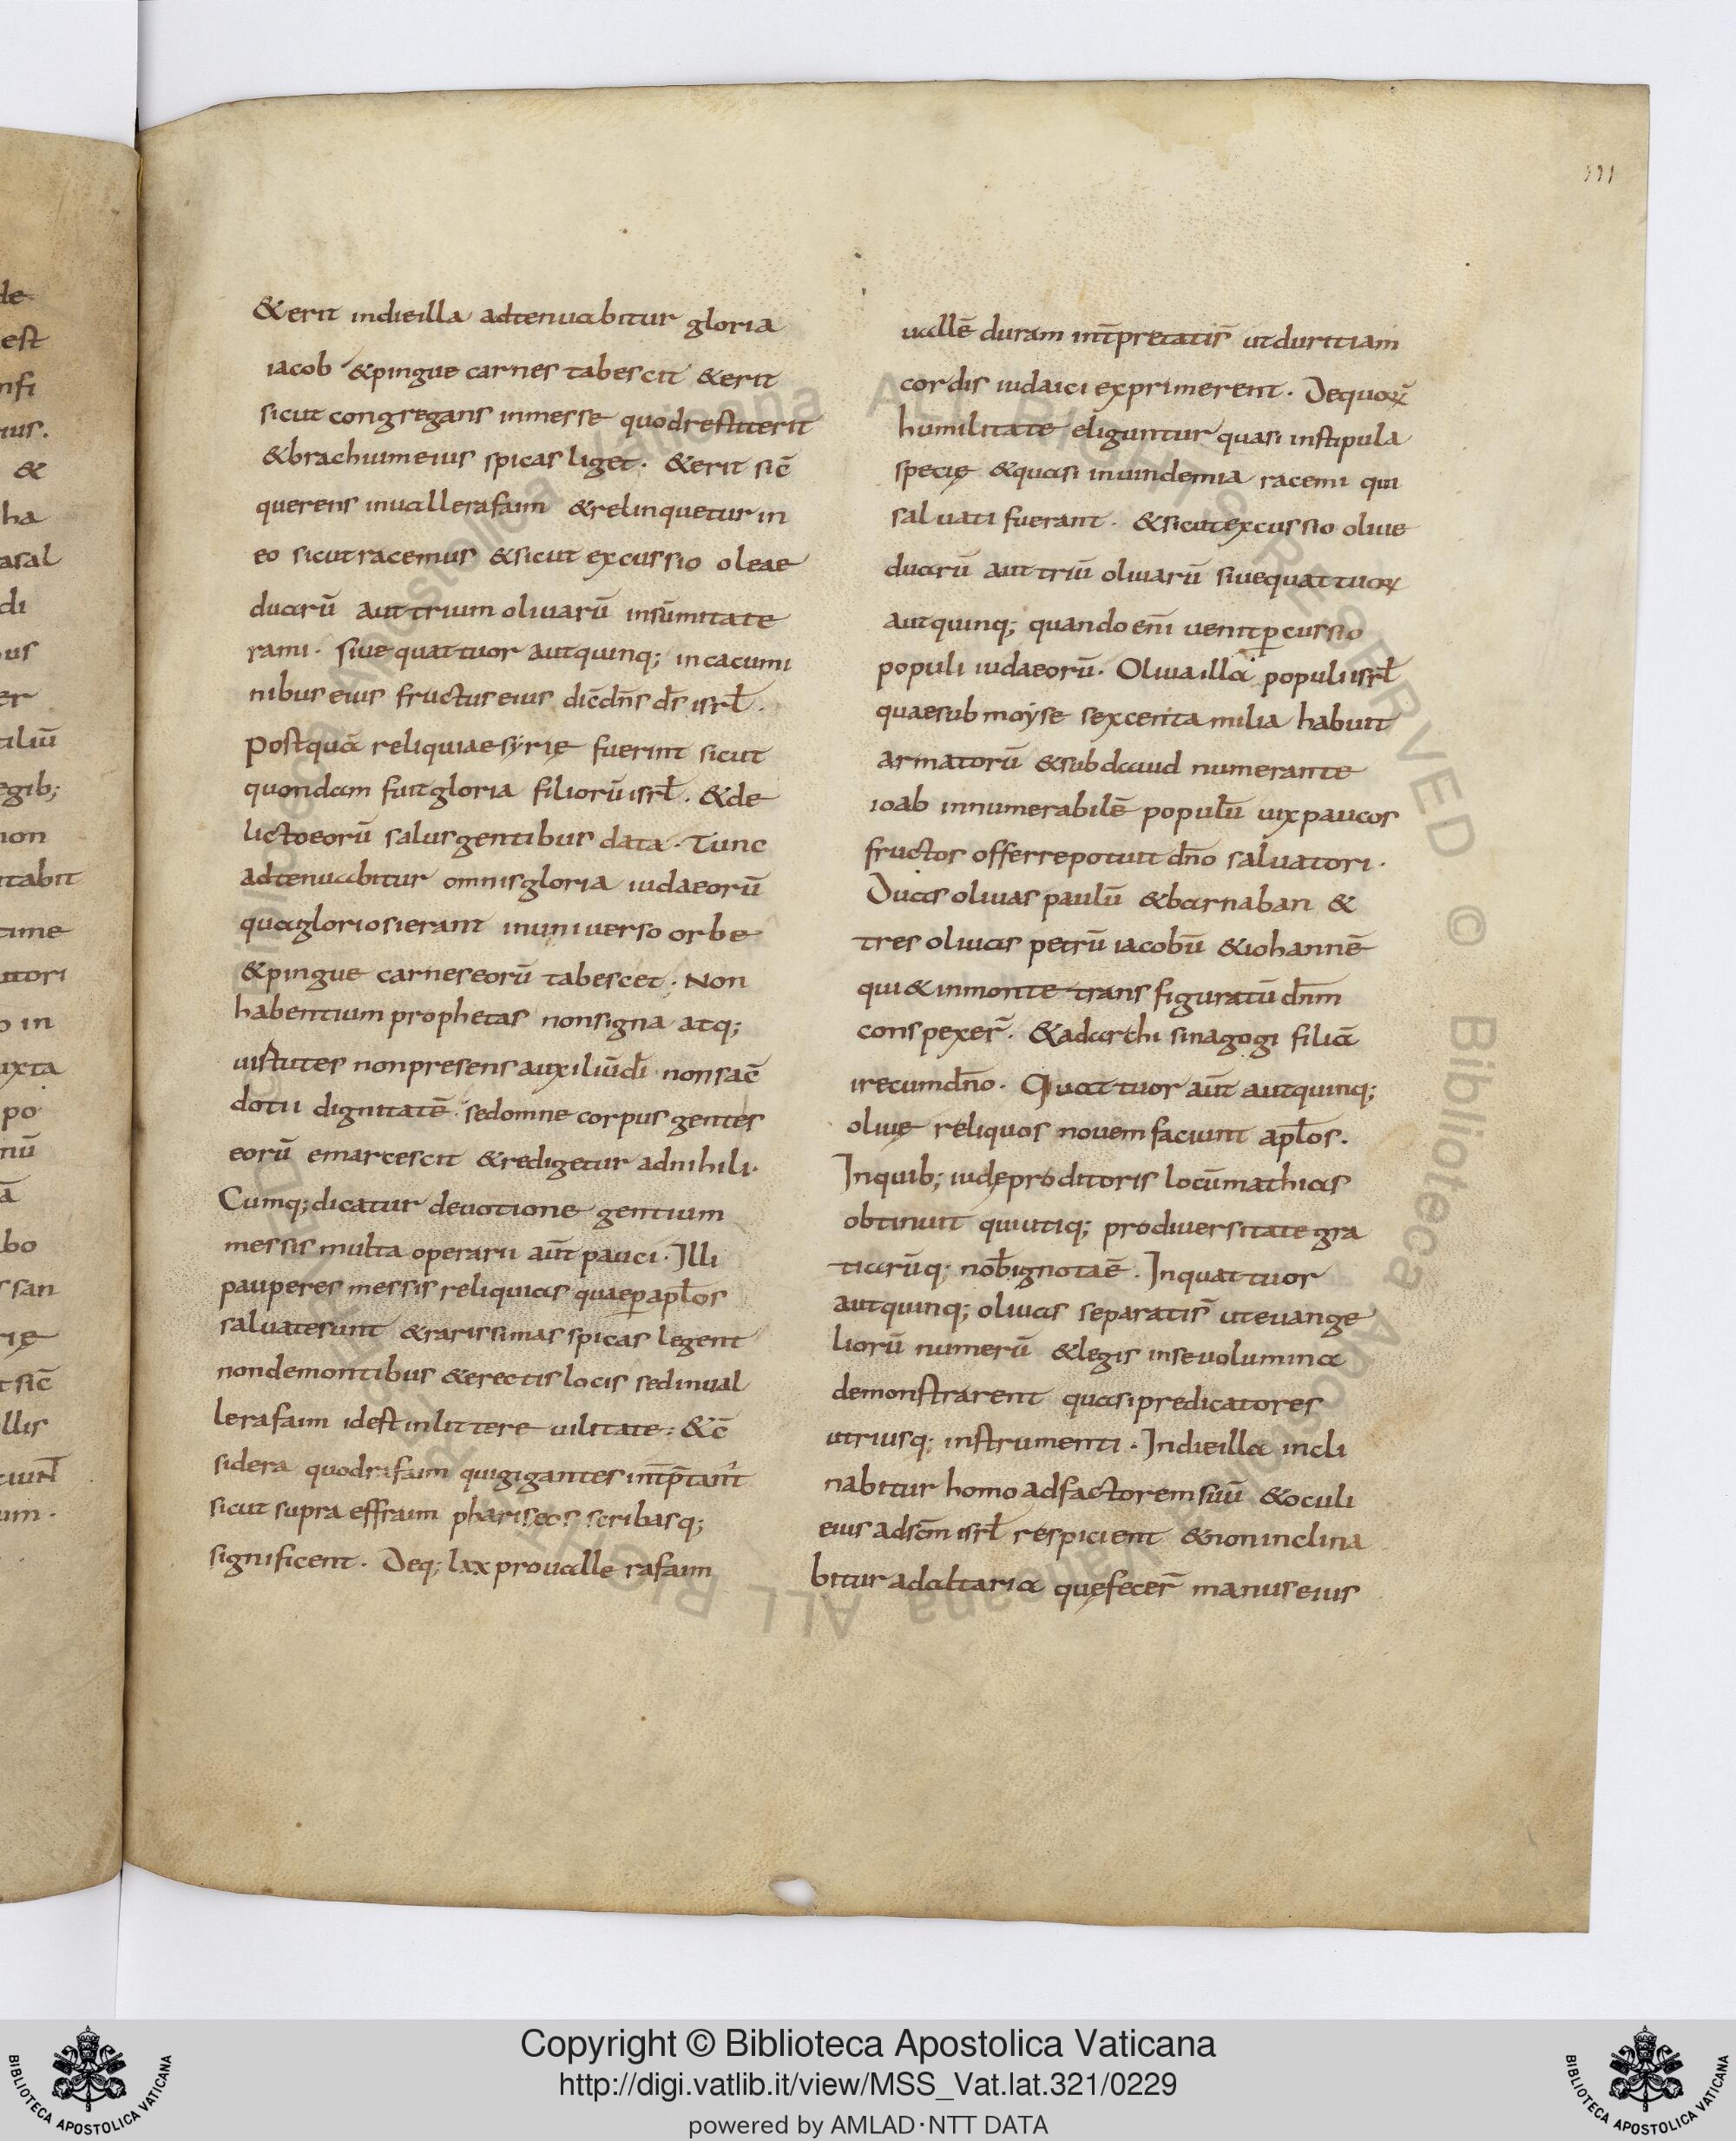 &erit indieilla adtenuabitur gloria
iacob &pingue carnes tabescit &erit
sicut congregans inmesse quodrestiterit
&brachiumeius spicas liget. &erit sic̄
querens inuallerafaim &relinquetur in
eo sicutracemus &sicut excussio oleae
duarū aut trium oliuarū insūmitate
rami. siue quattuor autquinq; incacumi
nibus eius fructus eius dic̄ dn̄s ds̄ isrł.
Postquā reliquiaesyrię fuerint sicut
quondam fuitgloria filiorū isrł. &de
lictoeorū salusgentibus data. Tunc
adtenuabitur omnisgloria iudaeorū
quagloriosierant inuniuerso orbe
&pingue carneseorū tabescet. Non
habentium prophetas nonsigna atq;
uistutes nonpresens auxiliū dī nonsac̄
dotii dignitatē. sedomne corpus gentes
eorū emarcescit &redigetur adnihili.
Cumq; dicatur deuotione gentium
messis multa operarii aūt pauci. Illi
pauperes messis reliquias quaeꝑapłos
saluatesunt &rarissimas spicas legent
nondemontibus &erectis locis sedinual
lerafaim idest inlittere uilitate: &c̄
sidera quodrafaim quigigantes int̄p̄tant̄
sicut supra effraim phariseos scribasq;
significent. Deq; lxx proualle rafaim
uallē duram int̄pretatis̄ utduritiam
cordis iudaici exprimerent. Dequoꝝ
humilitate eliguntur quasi instipula
specię &quasi inuindemia racemi qui
saluati fuerant. &sicutexcussio oliue
duarū aut triū oliuarū siuequattuoꝝ
autquinq; quando enī uenitꝑcussio
populi iudaeorū. Oliua illa populi isrł
quaesub moyse sexcenta milia habuit
armatorū &subdauid numerante
ioab innumerabilē populū uixpaucos
fructos offerrepotuit dn̄o saluatori.
Duas oliuas paulū &barnaban &
tres oliuas petrū iacobū &iohannē
qui&inmonte trans figuratū dn̄m
conspexer̄. &adarchi sinagogi filiā
irecumdn̄o. Quattuor aūt autquinq;
oliuę reliquos nouem faciunt apłos.
Inquib; iudęproditoris locūmathias
obtinuit quiutiq; prodiuersitate gra
tiarūq; nob̄ignotaē. Inquattuor
autquinq; oliuas separatis̄ uteuange
liorū numerū &legis inseuolumina
demonstrarent quasipredicatores
utriusq; instrumenti. Indieilla incli
nabitur homo adfactorem suū &oculi
eius adsc̄m isrł respicient &noninclina
bitur adaltaria quęfecer̄ manus eius
Copyright © Biblioteca Apostolica Vaticana
http://digi.vatlib.it/view/MSS_Vat.lat.321/0229
powered by AMLAD·NTT DATA
BIBLIOTECA APOSTOLICA VATICANA
BIBLIOTECA APOSTOLICA VATICANA